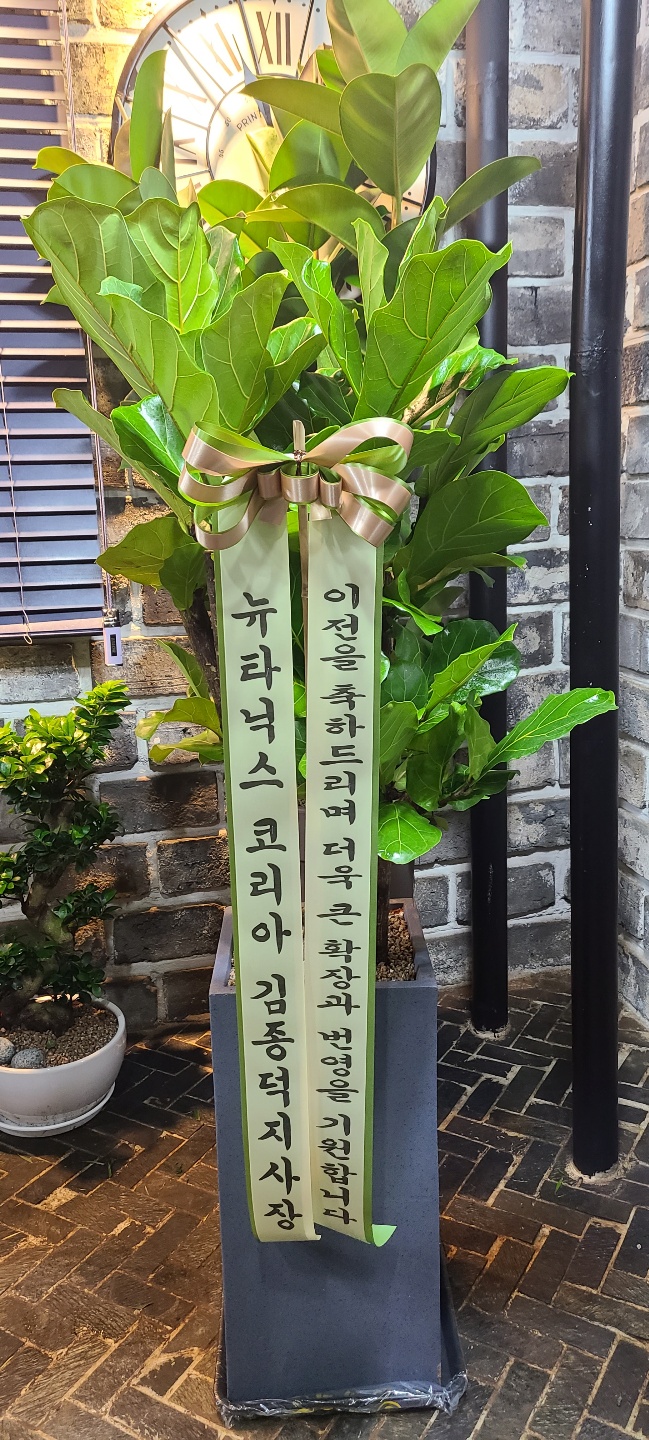 이전을 축하드리며 더욱 큰 확장과 번영을 기원합니다
뉴타닉스 코리아 김종덕지사장
XII
PRINA